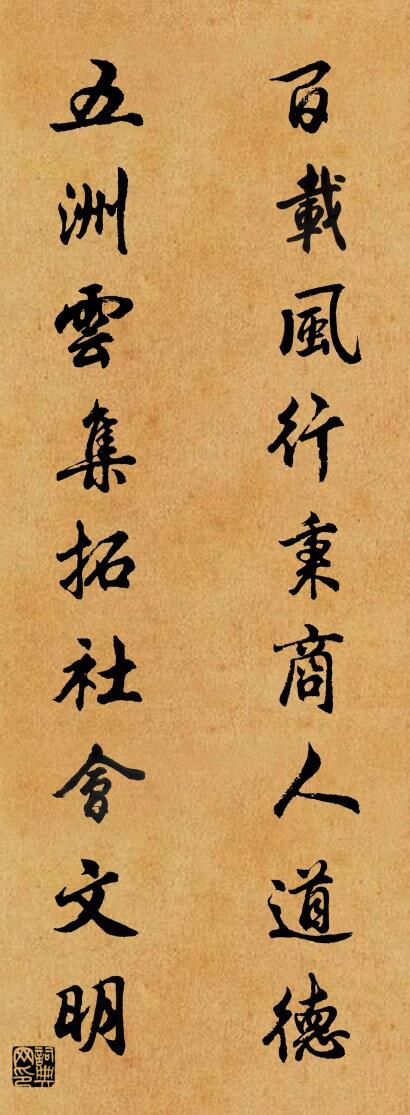 百載風行秉商人道德
五洲雲集拓社會文明
詞典網印